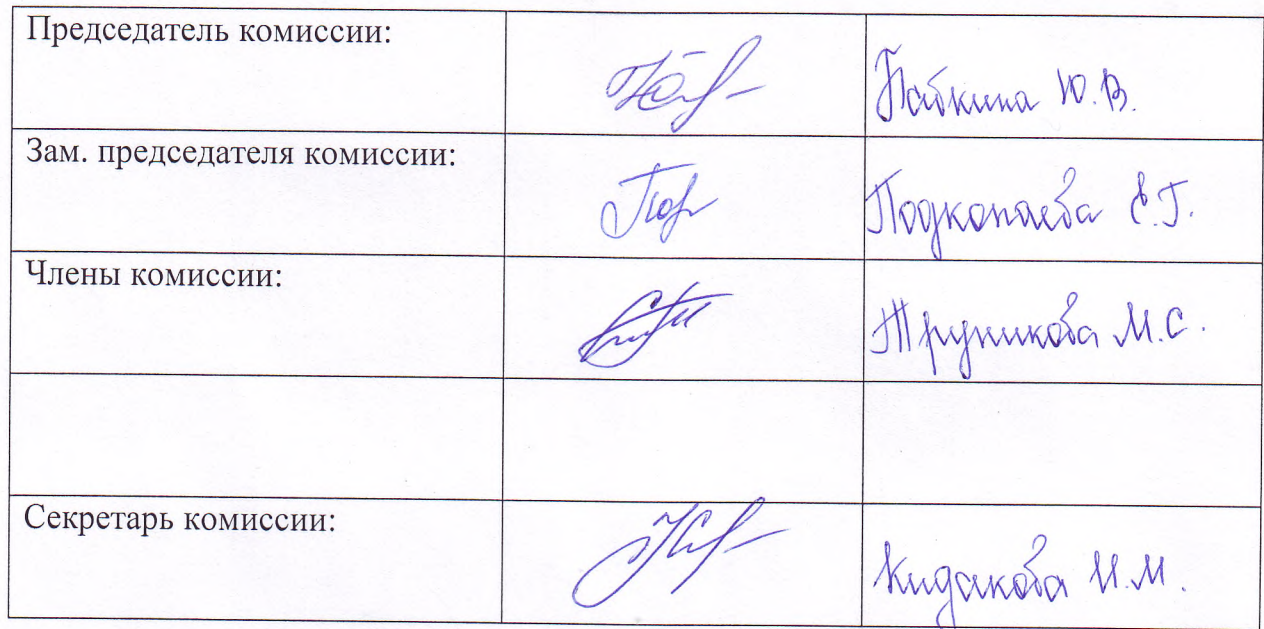 Председатель комиссии:
Бабкина Ю.В.
Зам. председателя комиссии:
Подкопаева Е.Г.
Члены комиссии:
Труникова М.С.
Секретарь комиссии:
Кидакова И.М.